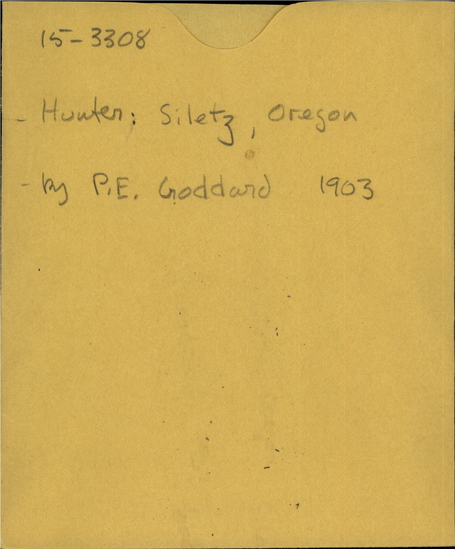 15-3308
- Hunter; Siletz, Oregon
- by P.E. Goddard 1903